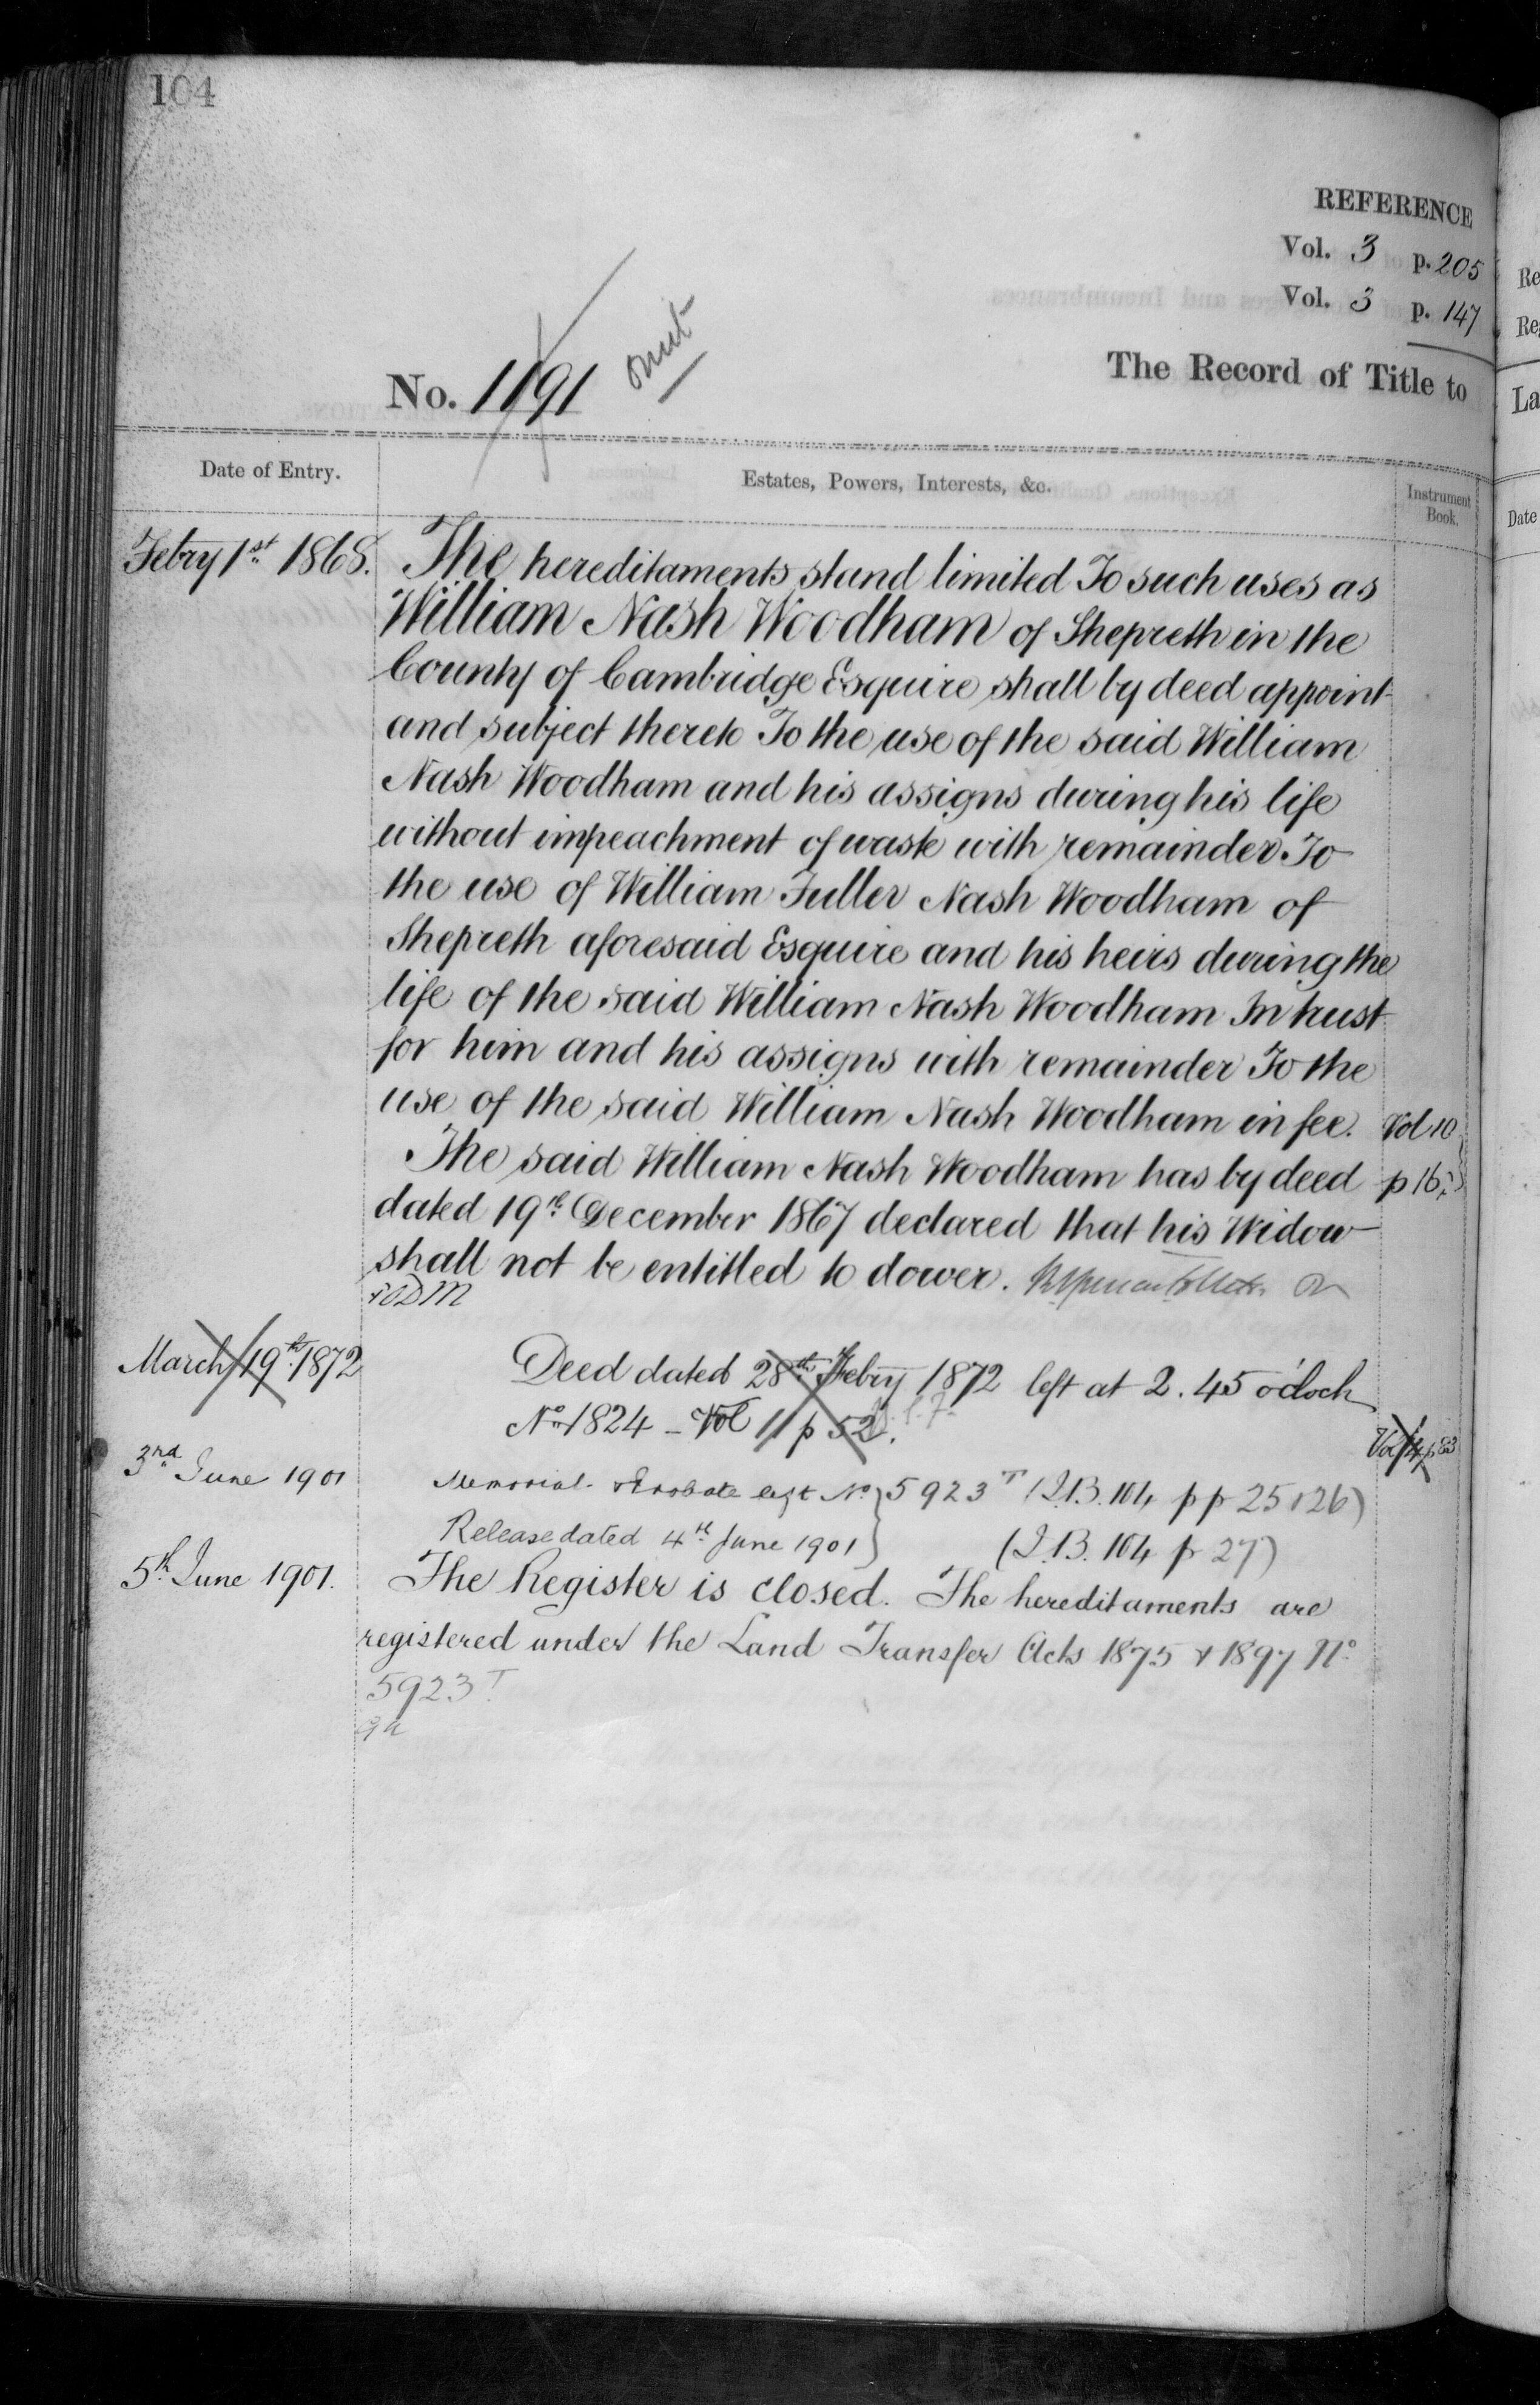 104
REFERENCE
Vol. 3 p. 205
Vol. 3 p. 147
No. 1191 omit
The Record of Title to
Date of Entry.
Estates, Powers, Interests, &c.
Instrument
Book.
Febry 1st 1868.
The hereditaments stand limited To such uses as
William Nash Woodham of Shepreth in the
County of Cambridge Esquire shall by deed appoint
and subject thereto To the use of the said William
Nash Woodham and his assigns during his life
without impeachment of waste with remainder To
the use of William Fuller Nash Woodham of
Shepreth aforesaid Esquire and his heirs during the
life of the said William Nash Woodham In trust
for him and his assigns with remainder To the
use of the said William Nash Woodham in fee. Vol 10
The said William Nash Woodham has by deed p 16
dated 19th December 1867 declared that his Widow
shall not be entitled to dower.
March 19th 1872
Deed dated 28th Febry 1872 left at 2.45 o'clock
No 1824 - Vol 11 p 52.
Vol 14 p 83
3rd June 1901
Memorial & Probate left No 5923T (I.B. 104 pp 25 & 26)
Release dated 4th June 1901 (I.B. 104 p 27)
5th June 1901.
The Register is closed. The hereditaments are
registered under the Land Transfer Acts 1875 & 1897 No
5923T
Re
Re
La
Date